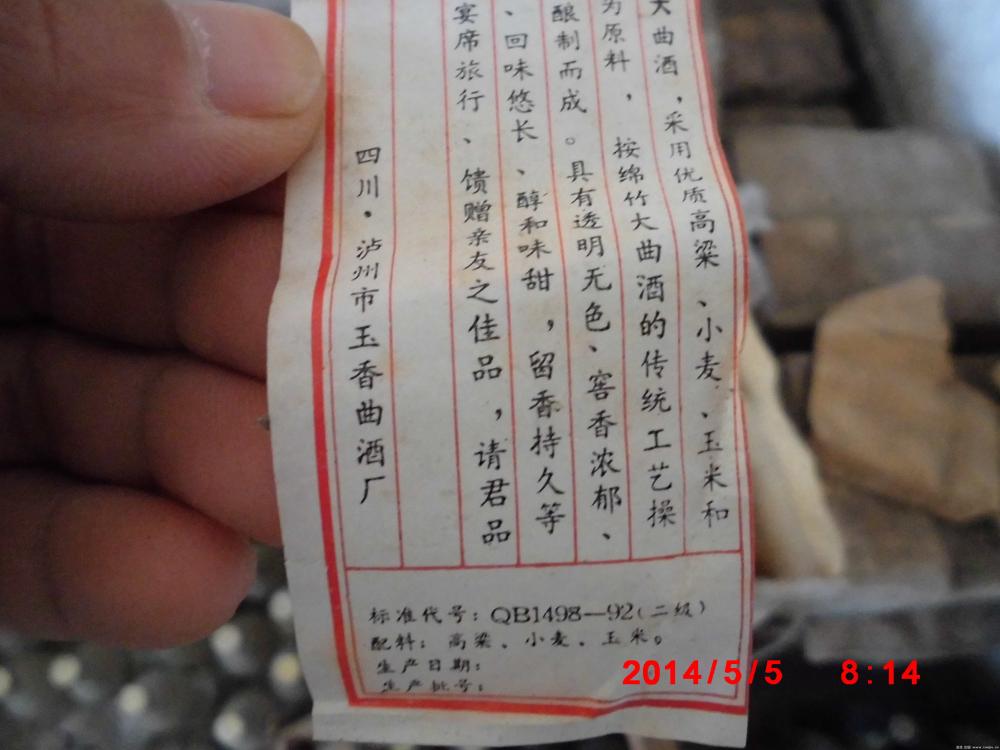 大曲酒，采用优质高粱、小麦、玉米和
为原料，按绵竹大曲酒的传统工艺操
酿制而成。具有透明无色、窖香浓郁、
、回味悠长、醇和味甜，留香持久等
宴席旅行、馈赠亲友之佳品，请君品
四川·泸州市玉香曲酒厂
标准代号：QB1498—92(二级)
配料：高粱、小麦、玉米。
生产日期：
生产批号：
2014/5/5 8:14